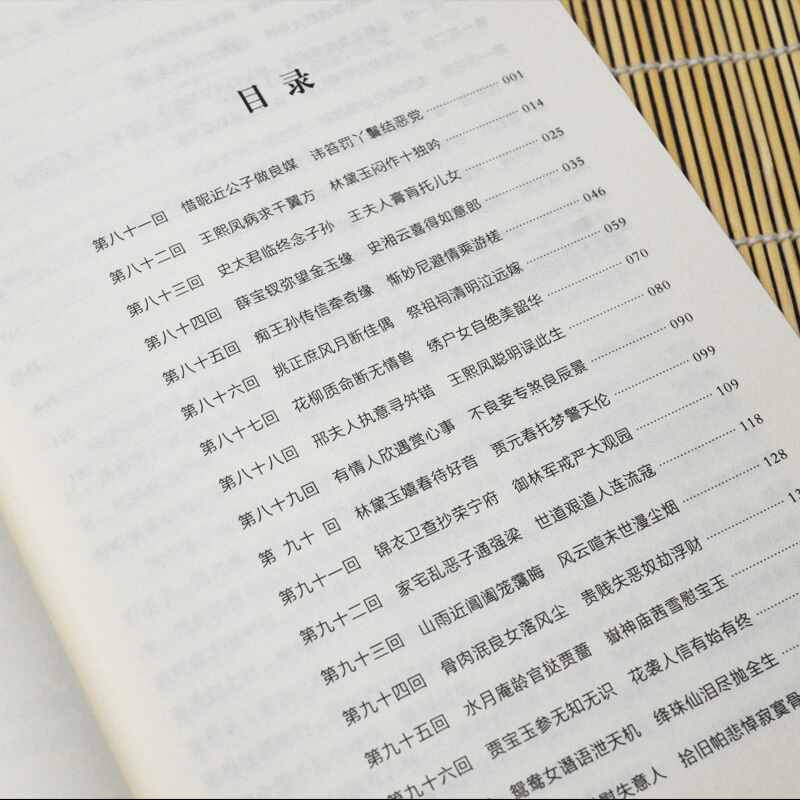 目录
第八十一回 惜昵近公子做良媒 讳笞罚丫鬟结恶党 001
第八十二回 王熙凤病求千翼方 林黛玉闷作十独吟 014
第八十三回 史太君临终念子孙 王夫人膏肓托儿女 025
第八十四回 薛宝钗弥望金玉缘 史湘云喜得如意郎 035
第八十五回 痴王孙传信牵奇缘 惭妙尼避情乘游槎 046
第八十六回 挑正庶风月断佳偶 祭祖祠清明泣远嫁 059
第八十七回 花柳质命断无情兽 绣户女自绝美韶华 070
第八十八回 邢夫人执意寻舛错 王熙凤聪明误此生 080
第八十九回 有情人欣遇赏心事 不良妾专煞良辰景 090
第九十回 林黛玉嬉春待好音 贾元春托梦警天伦 099
第九十一回 锦衣卫查抄荣宁府 御林军戒严大观园 109
第九十二回 家宅乱恶子通强梁 世道艰道人连流寇 118
第九十三回 山雨近阊阖笼霭晦 风云喧末世漫尘烟 128
第九十四回 骨肉泯良女落风尘 贵贱失恶奴劫浮财
第九十五回 水月庵龄官挞贾蔷 嶽神庙茜雪慰宝玉
第九十六回 贾宝玉参无知无识 花袭人信有始有终
鸳鸯女谐语泄天机 绛珠仙泪尽抛全生
慰失意人 拾旧帕悲悼寂寞骨